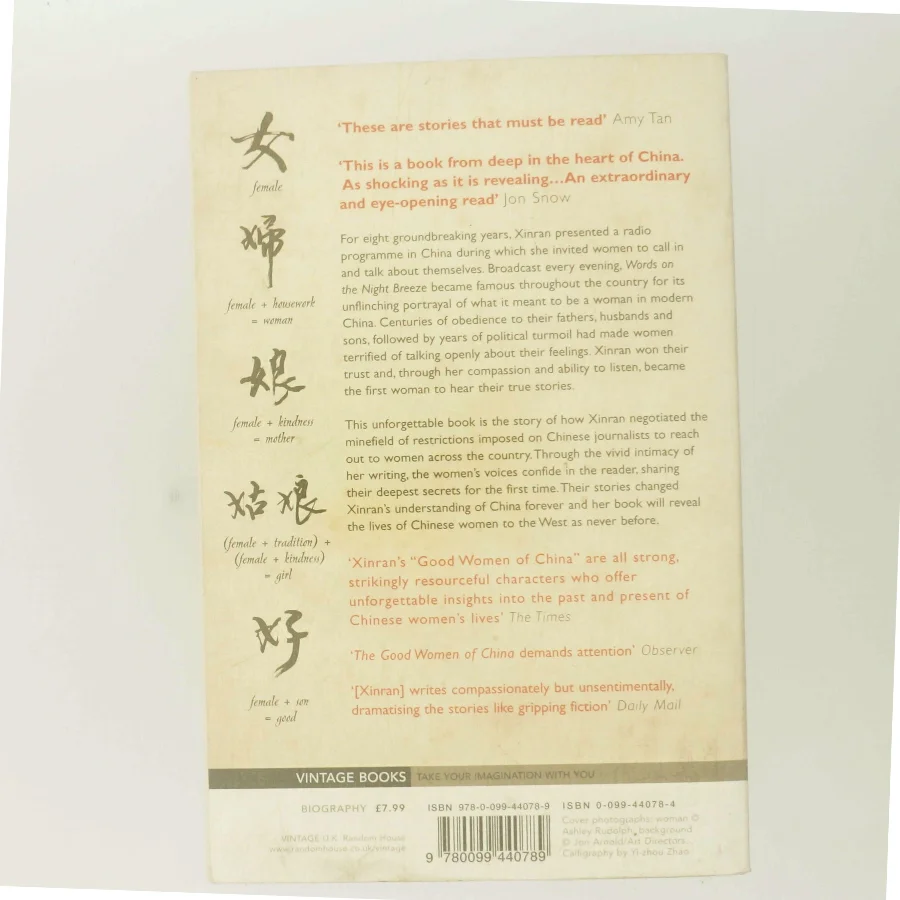 女
female
婦
female + housework
= woman
娘
female + kindness
= mother
姑娘
(female + tradition) +
(female + kindness)
= girl
好
female + son
= good
‘These are stories that must be read’ Amy Tan
‘This is a book from deep in the heart of China.
As shocking as it is revealing...An extraordinary
and eye-opening read’ Jon Snow
For eight groundbreaking years, Xinran presented a radio
programme in China during which she invited women to call in
and talk about themselves. Broadcast every evening, Words on
the Night Breeze became famous throughout the country for its
unflinching portrayal of what it meant to be a woman in modern
China. Centuries of obedience to their fathers, husbands and
sons, followed by years of political turmoil had made women
terrified of talking openly about their feelings. Xinran won their
trust and, through her compassion and ability to listen, became
the first woman to hear their true stories.
This unforgettable book is the story of how Xinran negotiated the
minefield of restrictions imposed on Chinese journalists to reach
out to women across the country. Through the vivid intimacy of
her writing, the women’s voices confide in the reader, sharing
their deepest secrets for the first time. Their stories changed
Xinran’s understanding of China forever and her book will reveal
the lives of Chinese women to the West as never before.
‘Xinran’s “Good Women of China” are all strong,
strikingly resourceful characters who offer
unforgettable insights into the past and present of
Chinese women’s lives’ The Times
‘The Good Women of China demands attention’ Observer
‘[Xinran] writes compassionately but unsentimentally,
dramatising the stories like gripping fiction’ Daily Mail
VINTAGE BOOKS TAKE YOUR IMAGINATION WITH YOU
BIOGRAPHY £7.99
VINTAGE U.K. Random House
www.randomhouse.co.uk/vintage
ISBN 978-0-099-44078-9 ISBN 0-099-44078-4
9 780099 440789
Cover photographs: woman ©
Ashley Rudolph, background
© Jon Arnold/Art Directors.
Calligraphy by Yi-zhou Zhao